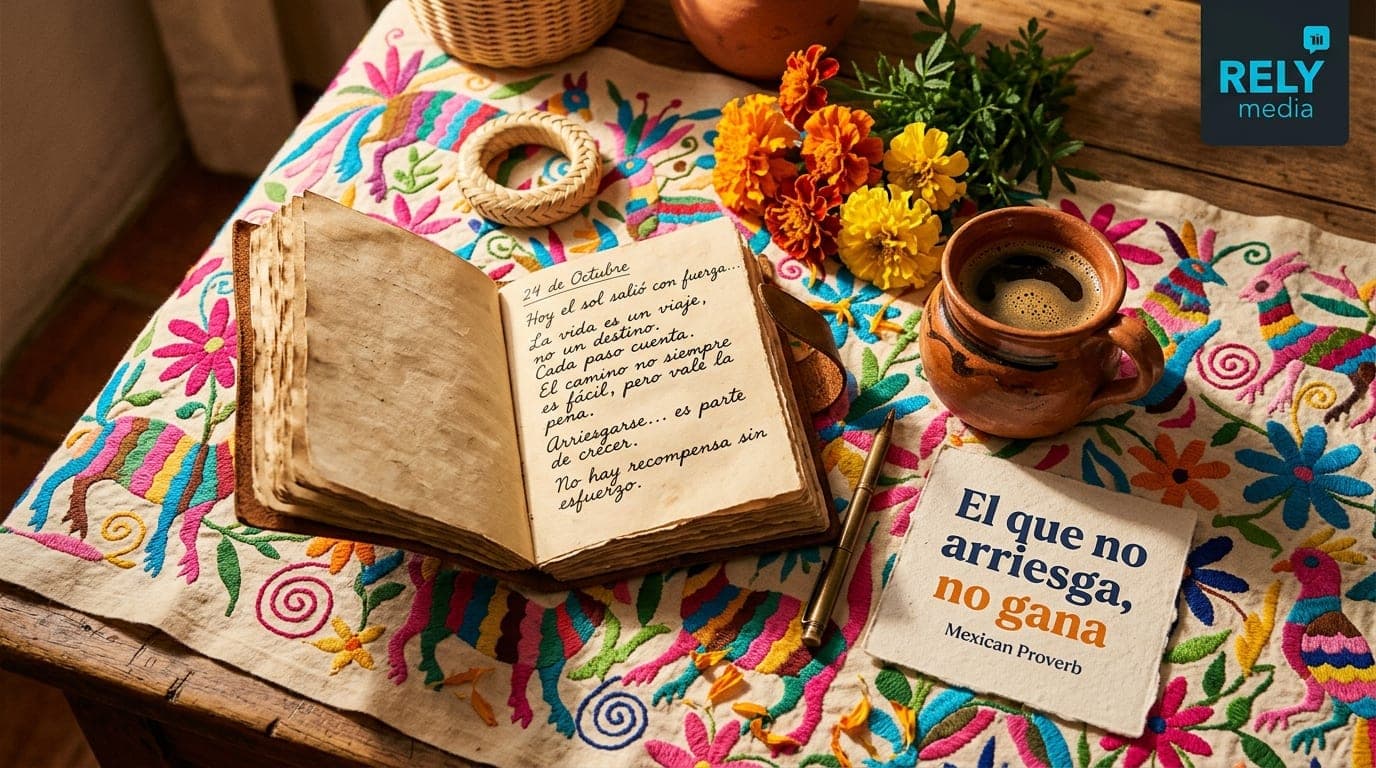 RELY
media
24 de Octubre
Hoy el sol salió con fuerza...
La vida es un viaje,
no un destino.
Cada paso cuenta.
El camino no siempre
es fácil, pero vale la
pena.
Arriesgarse... es parte
de crecer.
No hay recompensa sin
esfuerzo.
El que no
arriesga,
no gana
Mexican Proverb